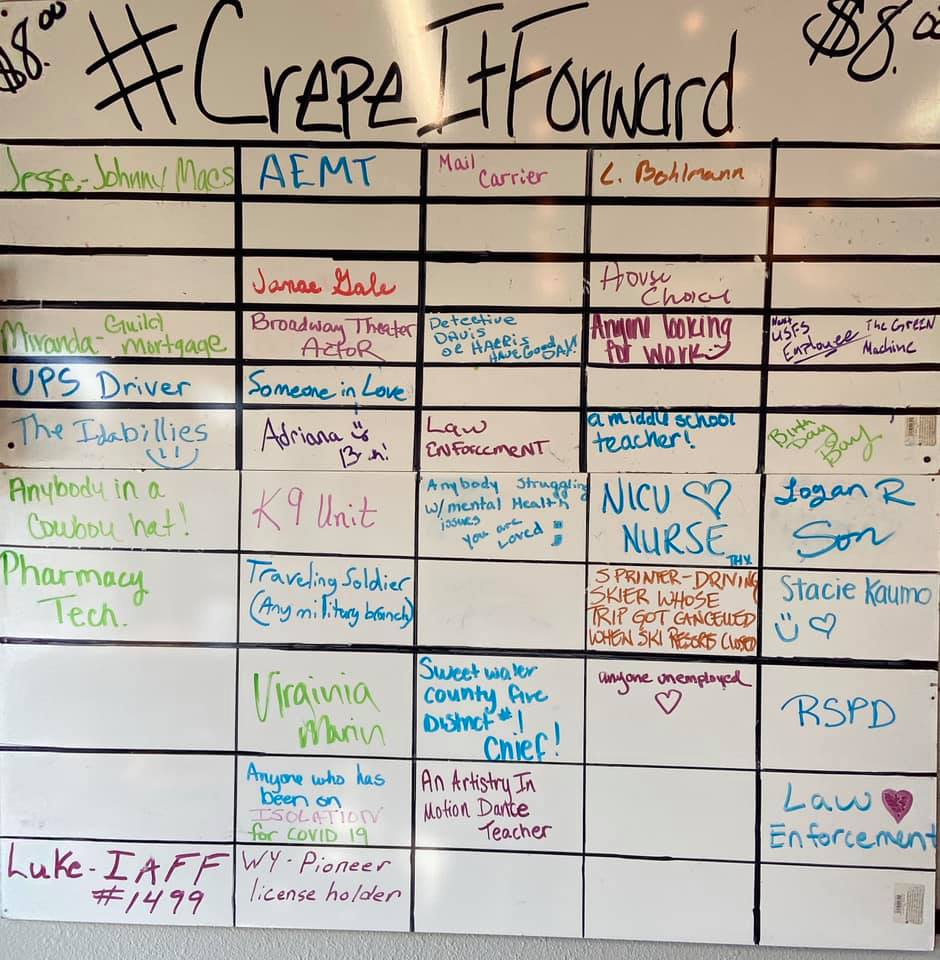 $8.00
#CrepeItForward
$8.00
Jesse-Johnny Macs
AEMT
Mail
Carrier
L. Bohlmann
Janae Gale
House
Choice
Miranda- Guild
mortgage
Broadway Theater
Actor
Detective
Davis
or Harris
Have Good Day!
Anyone looking
for work
USFS
Employee
The Green
Machine
UPS Driver
Someone in Love
The Idabillies
Adriana
Law
Enforcement
a middle school
teacher!
Birth
Day
Boy
Anybody in a
Cowboy hat!
K9 Unit
Anybody Struggling
w/mental Health
issues
you are
Loved
NICU
NURSE
THX
Logan R
Son
Pharmacy
Tech.
Traveling Soldier
(Any military branch)
SPRINTER-DRIVING
SKIER WHOSE
TRIP GOT CANCELLED
WHEN SKI RESORTS CLOSED
Stacie Kaumo
Virginia
Marin
Sweetwater
county fire
District #1
Chief!
anyone unemployed
RSPD
Anyone who has
been on
ISOLATION
for COVID 19
An Artistry In
Motion Dance
Teacher
Law
Enforcement
Luke-IAFF
#1499
WY-Pioneer
license holder